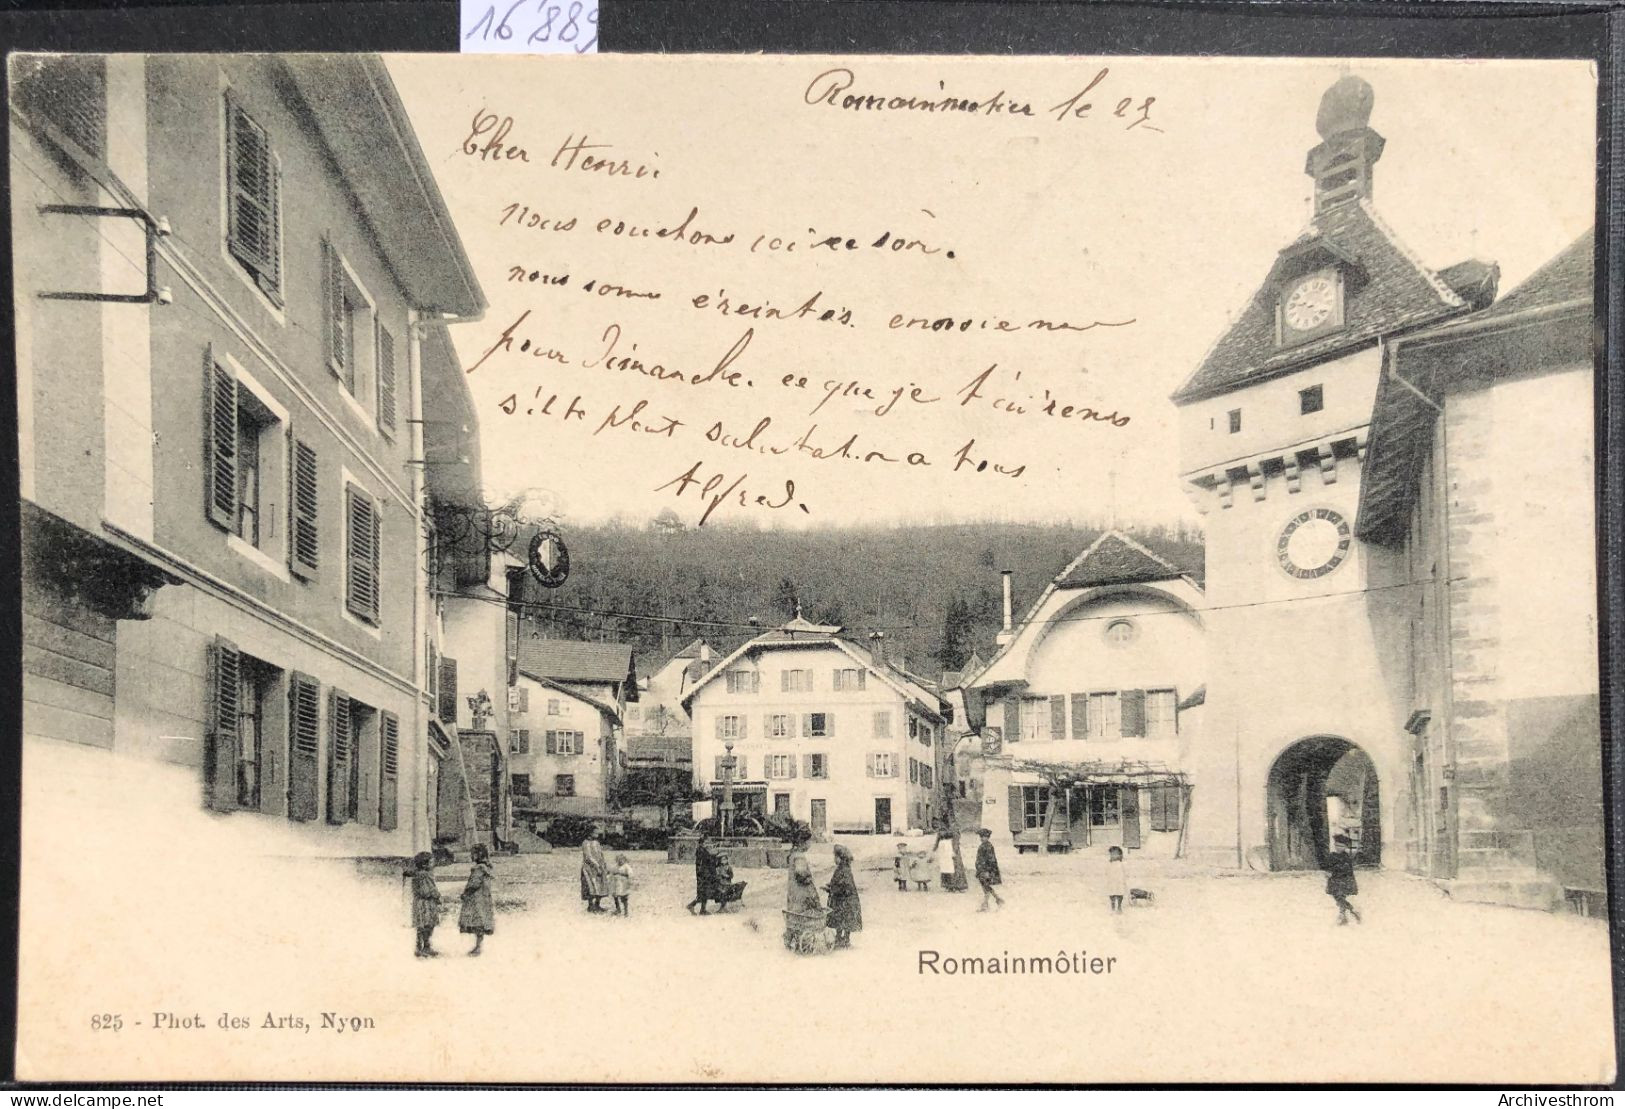 16'889
Romainmotier le 23
Cher Henri.
nous couchons ici ce soir.
nous somes éreintés.
pour Dimanche. ce que je t'
s'il te plait salutation a tous
Alfred.
Romainmôtier
825 - Phot. des Arts, Nyon
Archivesthrom